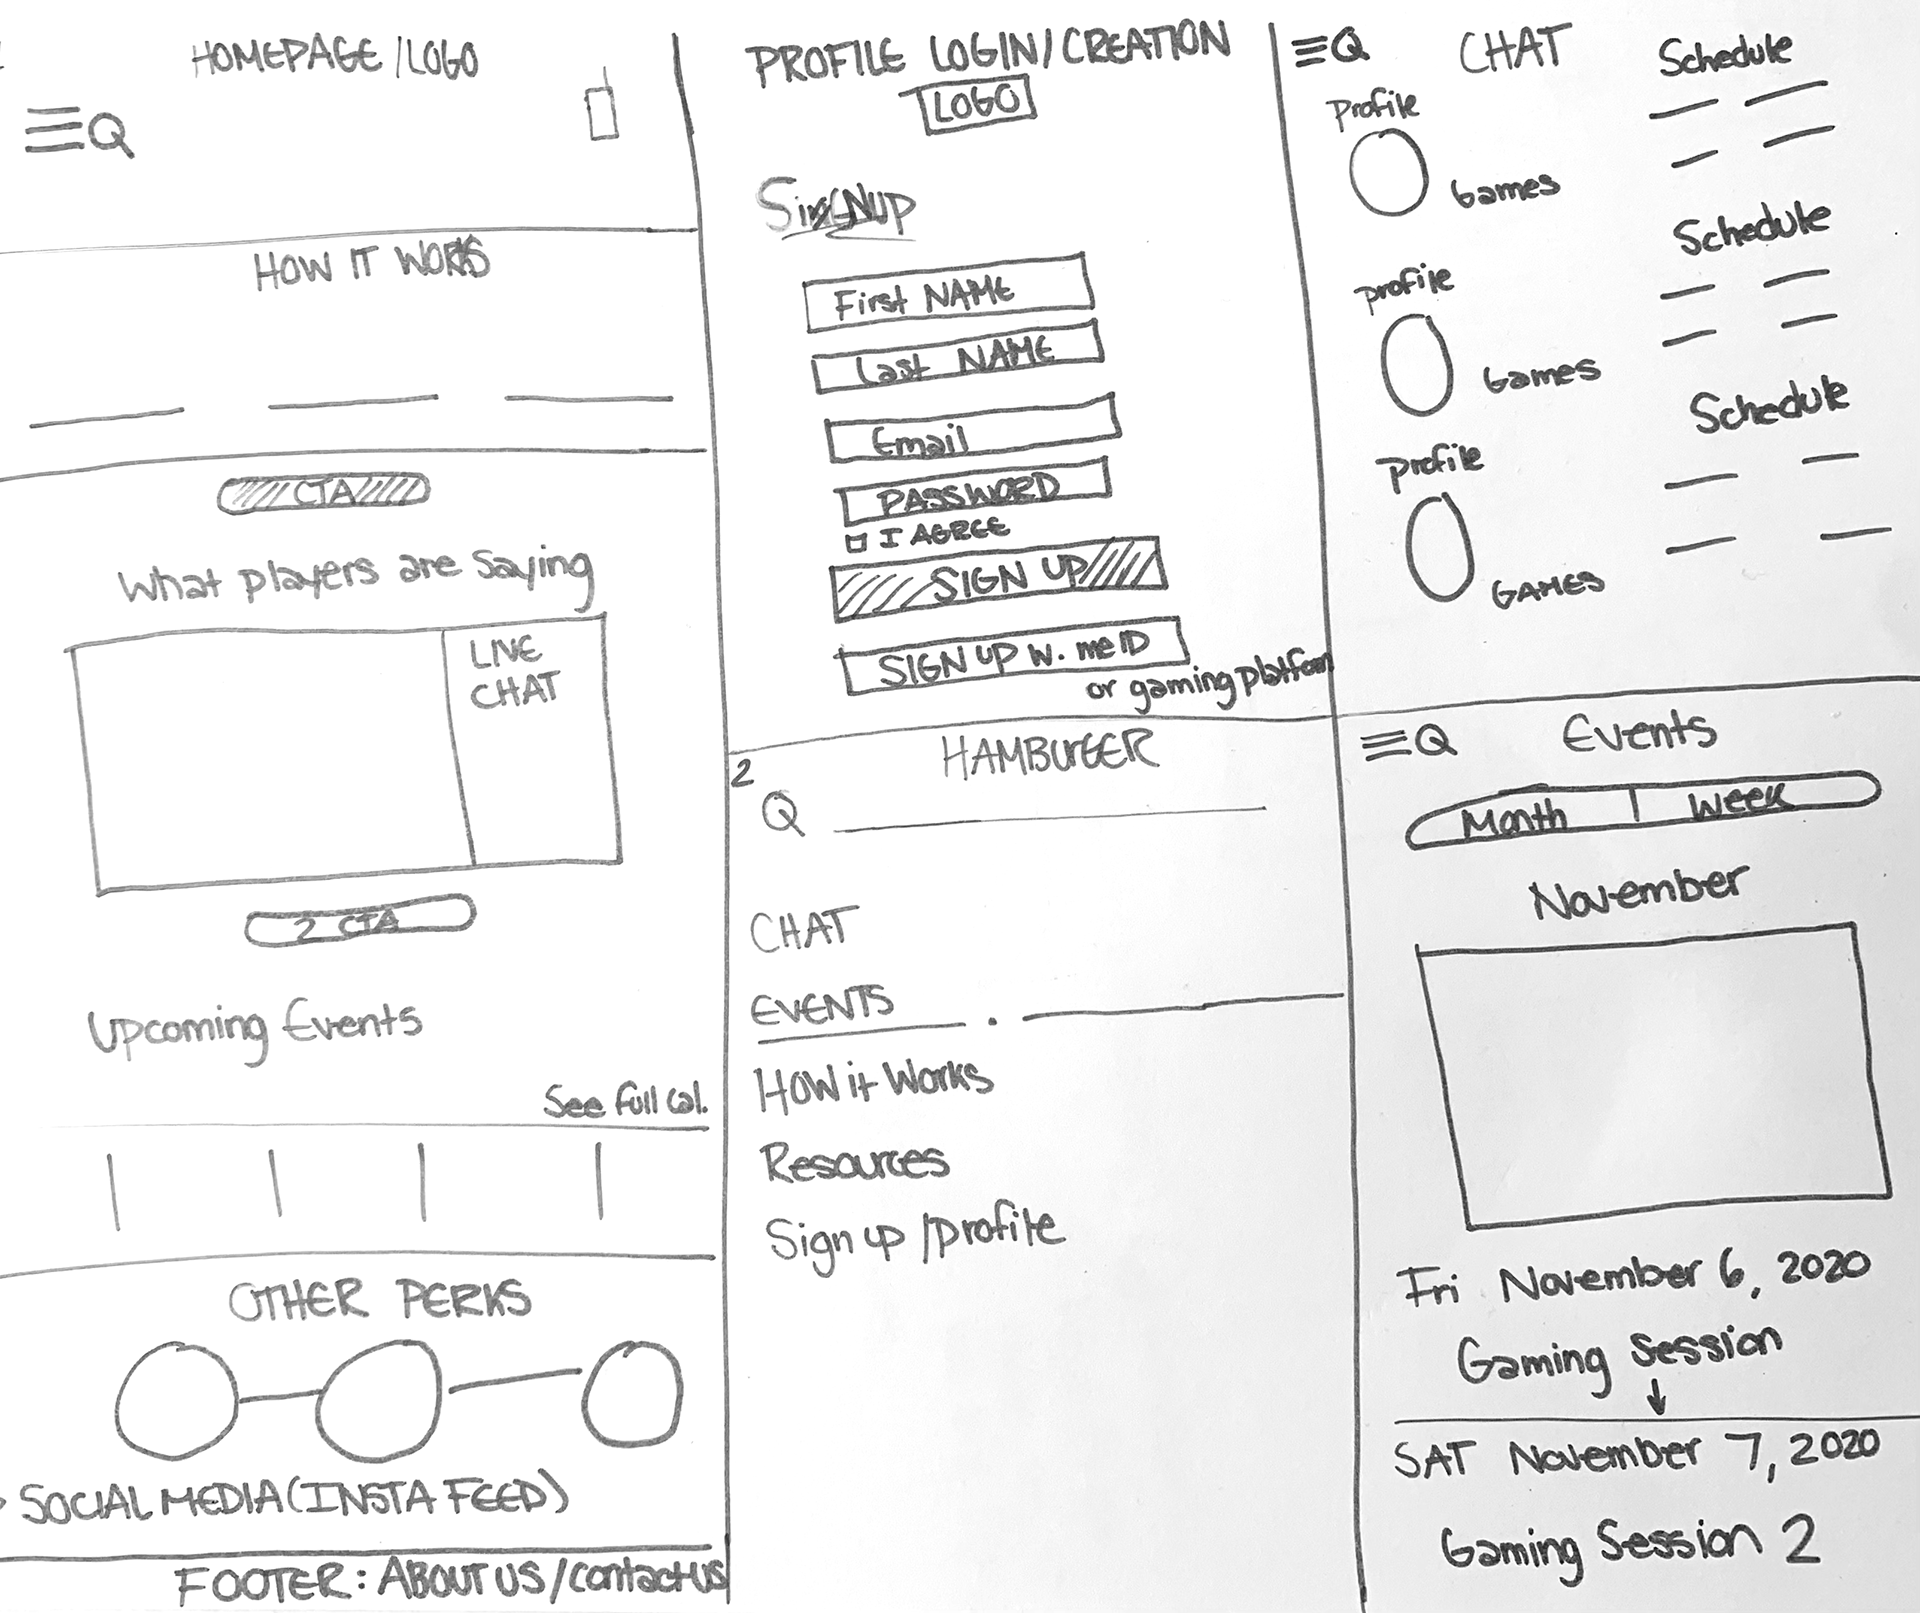 HOMEPAGE/LOGO
HOW IT WORKS
CTA
What players are saying
LIVE
CHAT
2 CTA
Upcoming Events
See full cal.
OTHER PERKS
SOCIAL MEDIA (INSTA FEED)
FOOTER: ABOUT US/contact us
PROFILE LOGIN/CREATION
LOGO
SIGNUP
First NAME
Last NAME
Email
PASSWORD
I AGREE
SIGN UP
SIGN UP W. me ID
or gaming platform
2
HAMBURGER
CHAT
EVENTS
HOW it Works
Resources
Sign up /profile
CHAT
Schedule
profile
Games
Schedule
profile
Games
Schedule
profile
GAMES
Events
Month | Week
November
Fri November 6, 2020
Gaming Session
SAT November 7, 2020
Gaming Session 2